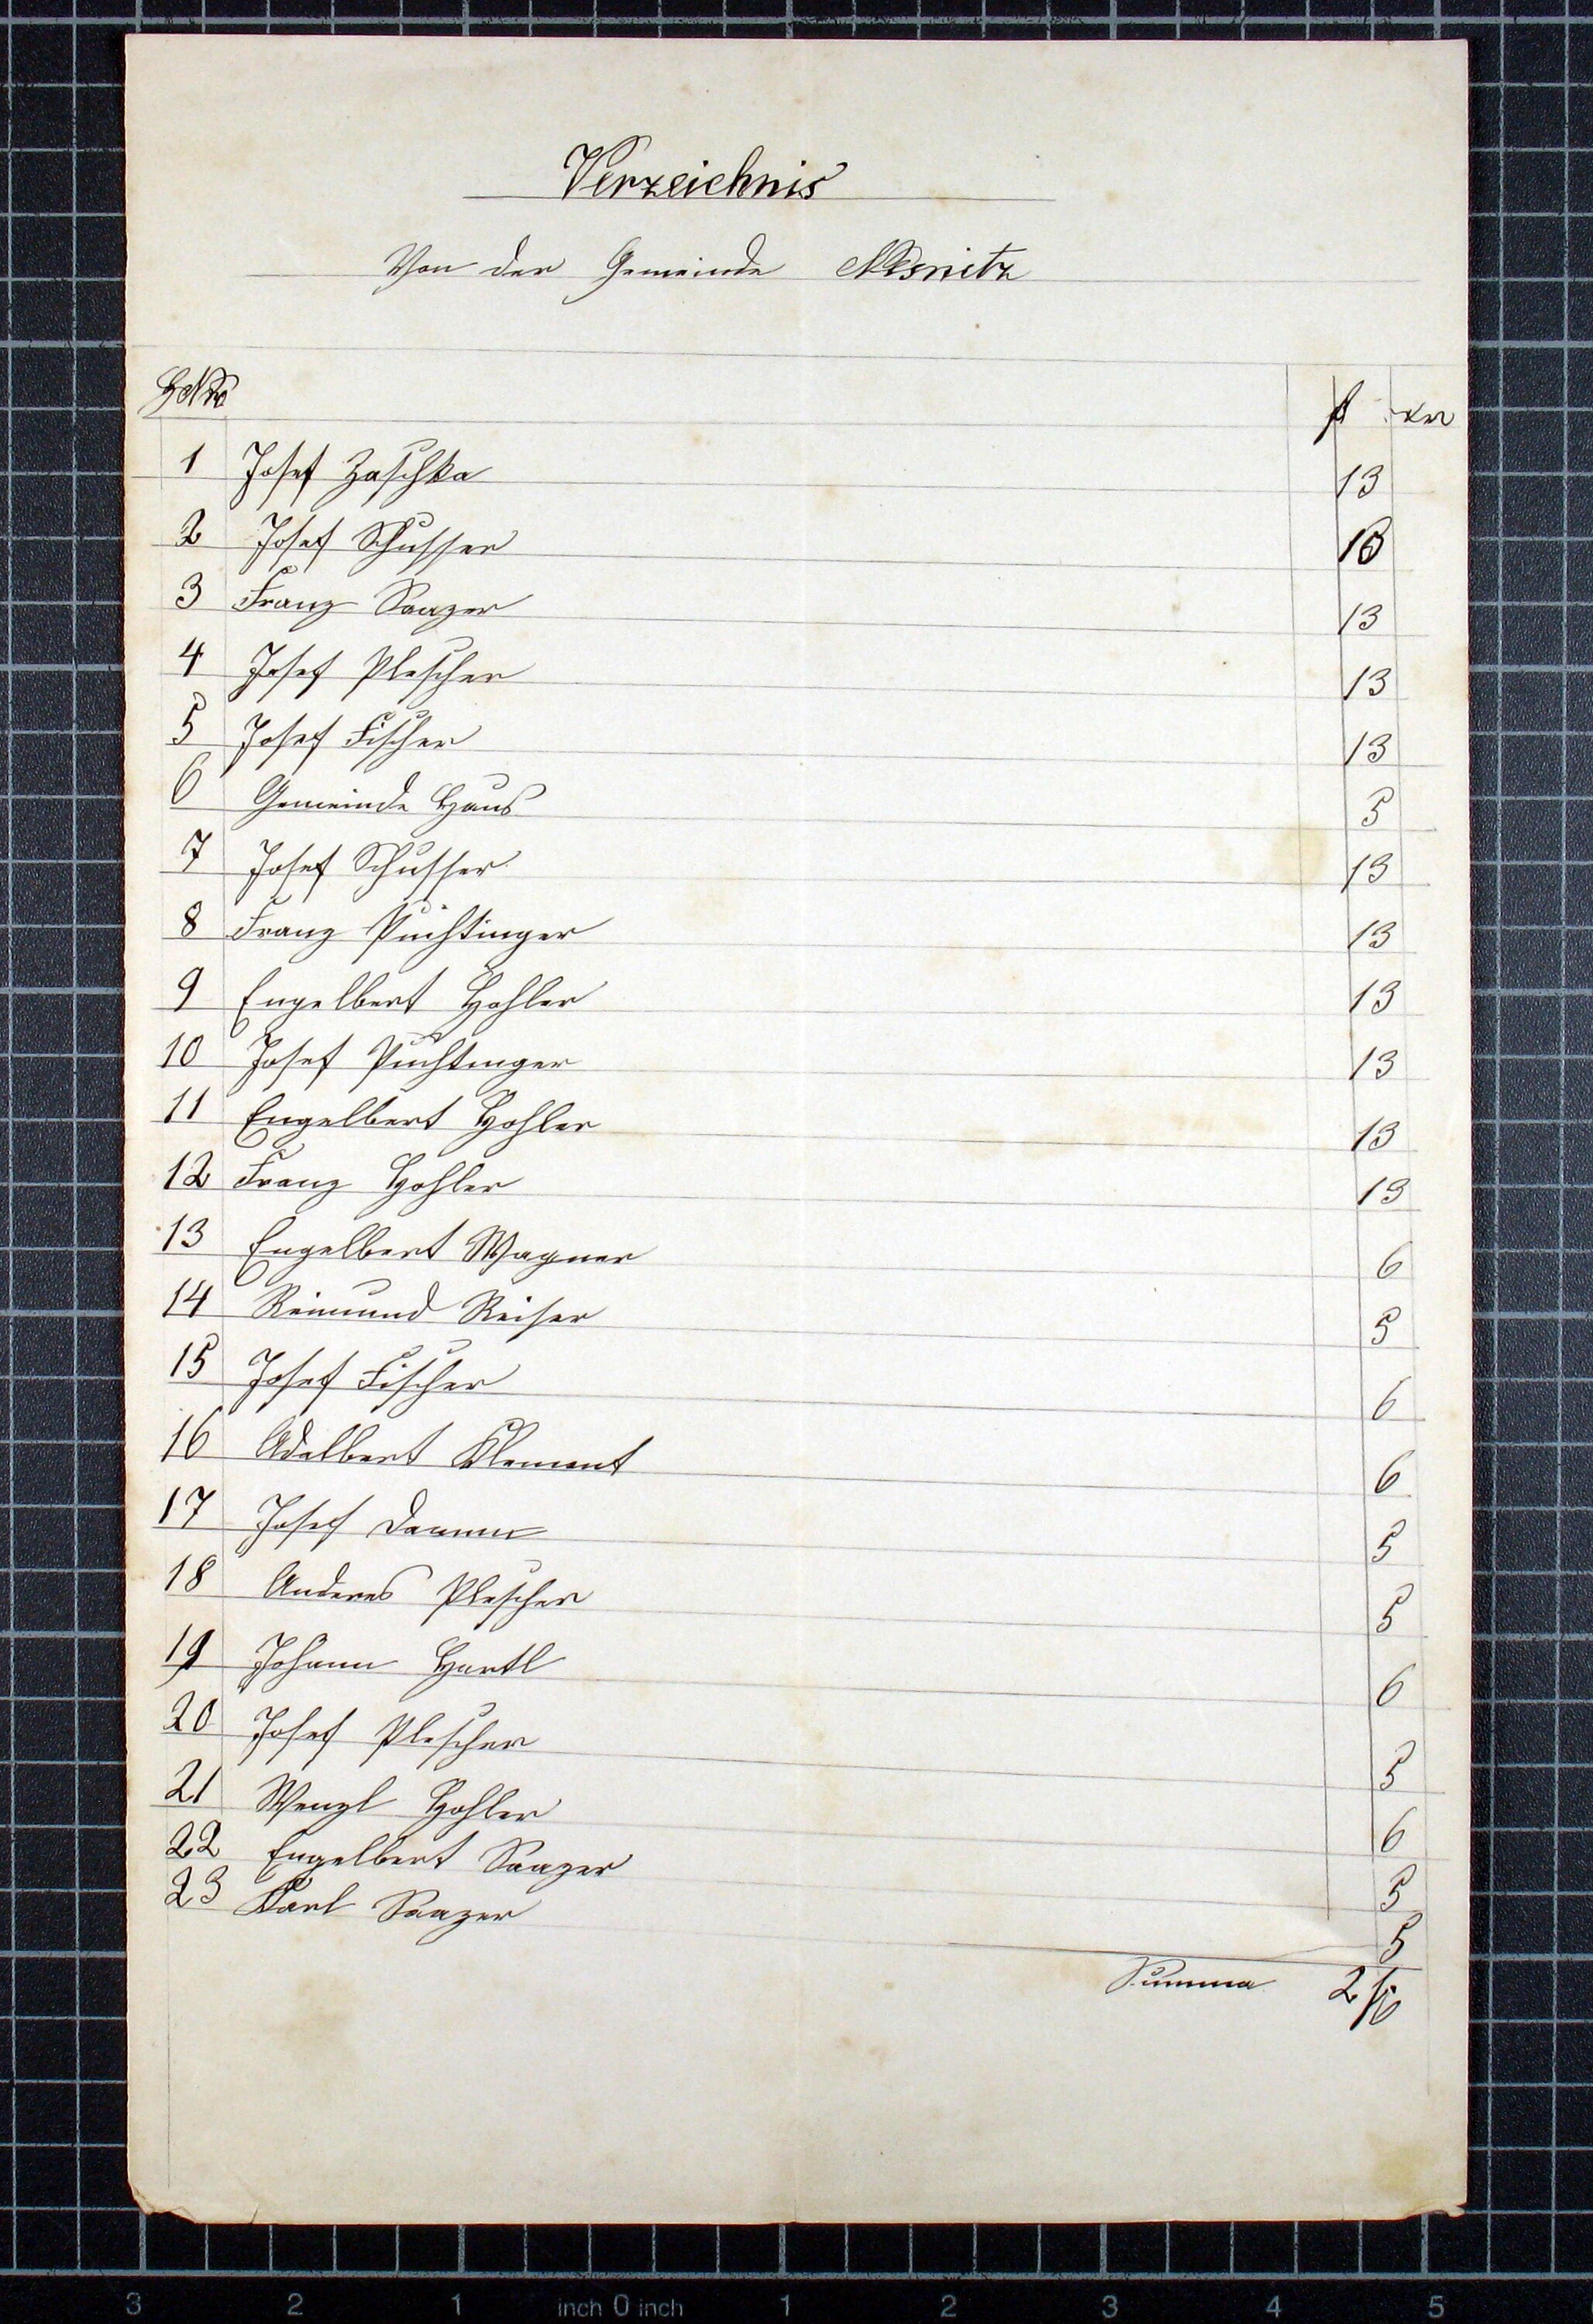 Verzeichnis
Von der Gemeinde Nesnitz
HNro fl kr
1 Josef Zaschka 13
2 Josef Schusser 16
3 Franz Saazer 13
4 Josef Plescher 13
5 Josef Fischer 13
6 Gemeinde Haus 5
7 Josef Schusser 13
8 Franz Puchtinger 13
9 Engelbert Hohler 13
10 Josef Puchtinger 13
11 Engelbert Hohler 13
12 Franz Hohler 13
13 Engelbert Wagner 6
14 Reimund Reiser 5
15 Josef Fischer 6
16 Adalbert Klement 6
17 Josef Damm 5
18 Anderes Plescher 5
19 Johann Hartl 6
20 Josef Plescher 5
21 Wenzl Hohler 6
22 Engelbert Saazer 5
23 Karl Saazer 5
Summa 2
3 2 1 inch 0 inch 1 2 3 4 5